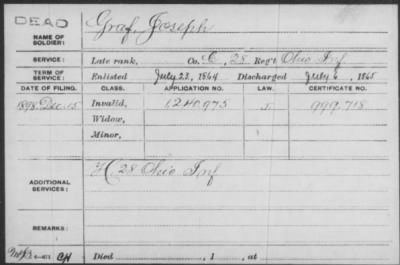 DEAD
Graf, Joseph
NAME OF SOLDIER:
SERVICE: Late rank, Co. C, 28 Reg't Ohio Inf.
TERM OF SERVICE: Enlisted July 23, 1864 Discharged July 6, 1865
DATE OF FILING. CLASS. APPLICATION NO. LAW. CERTIFICATE NO.
1898 Dec. 15 Invalid, 1240975 J 999,718
Widow,
Minor,
ADDITIONAL SERVICES: H, 28 Ohio Inf
REMARKS:
Died , 1 , at